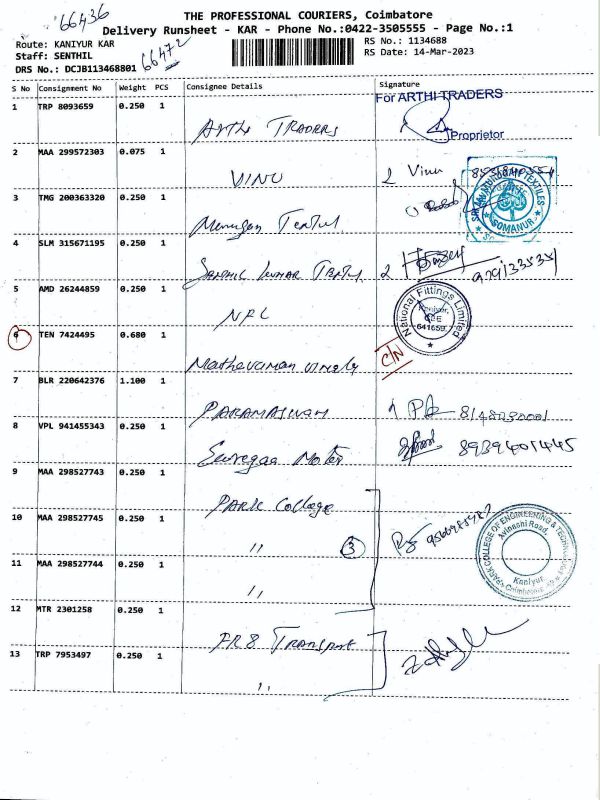 66436
THE PROFESSIONAL COURIERS, Coimbatore
Delivery Runsheet - KAR - Phone No.:0422-3505555 - Page No.:1
Route: KANIYUR KAR
RS No.: 1134688
Staff: SENTHIL
RS Date: 14-Mar-2023
DRS No.: DCJB113468801
66472
S No Consignment No Weight PCS Consignee Details Signature
1 TRP 8093659 0.250 1 Arthi Traders For ARTHI TRADERS
Proprietor
2 MAA 299572303 0.075 1 VINU Vinu
3 TMG 200363320 0.250 1 Murugan
SRI BALMURUGAN TEXTILES
SOMANUR
4 SLM 315671195 0.250 1
5 AMD 26244859 0.250 1 NFL
National Fittings Limited
Kaniyur,
CBE
641659.
6 TEN 7424495 0.680 1 C/N
7 BLR 220642376 1.100 1 PARAMASIVAM
8 VPL 941455343 0.250 1 8939401445
9 MAA 298527743 0.250 1 PARK College
10 MAA 298527745 0.250 1 ,, 3
PARK COLLEGE OF ENGINEERING & TECHNOLOGY
Avinashi Road,
Kaniyur
Coimbatore
11 MAA 298527744 0.250 1 ,,
12 MTR 2301258 0.250 1 PR8 Transport
13 TRP 7953497 0.250 1 ,,